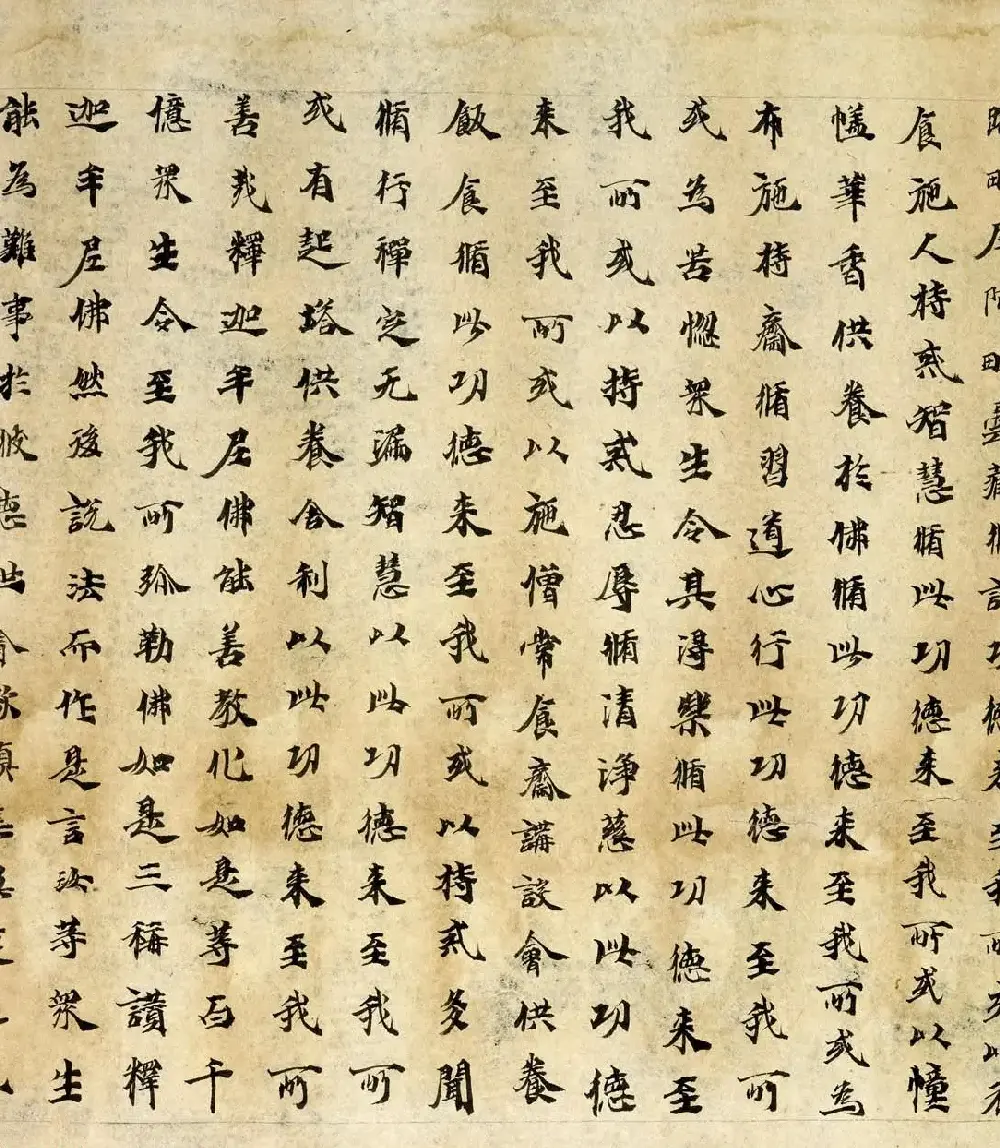 阿毗曇藏脩諸功德来至我所或以衣
食施人持戒智慧脩此功德来至我所或以幢
華香供養於佛脩此功德来至我所或為
布施持齋脩習道心行此功德来至我所
或為苦惱衆生令其得樂脩此功德来至
我所或以持戒忍辱脩清淨慈以此功德
来至我所或以施僧常食齋講設會供養
飯食脩此功德来至我所或以持戒多聞
脩行禪定无漏智慧以此功德来至我所
或有起塔供養舍利以此功德来至我所
善哉釋迦牟尼佛能善教化如是等百千
億衆生令至我所弥勒佛如是三稱讃釋
迦牟尼佛然後說法而作是言汝等衆生
能為難事於彼惡世貪欲瞋恚